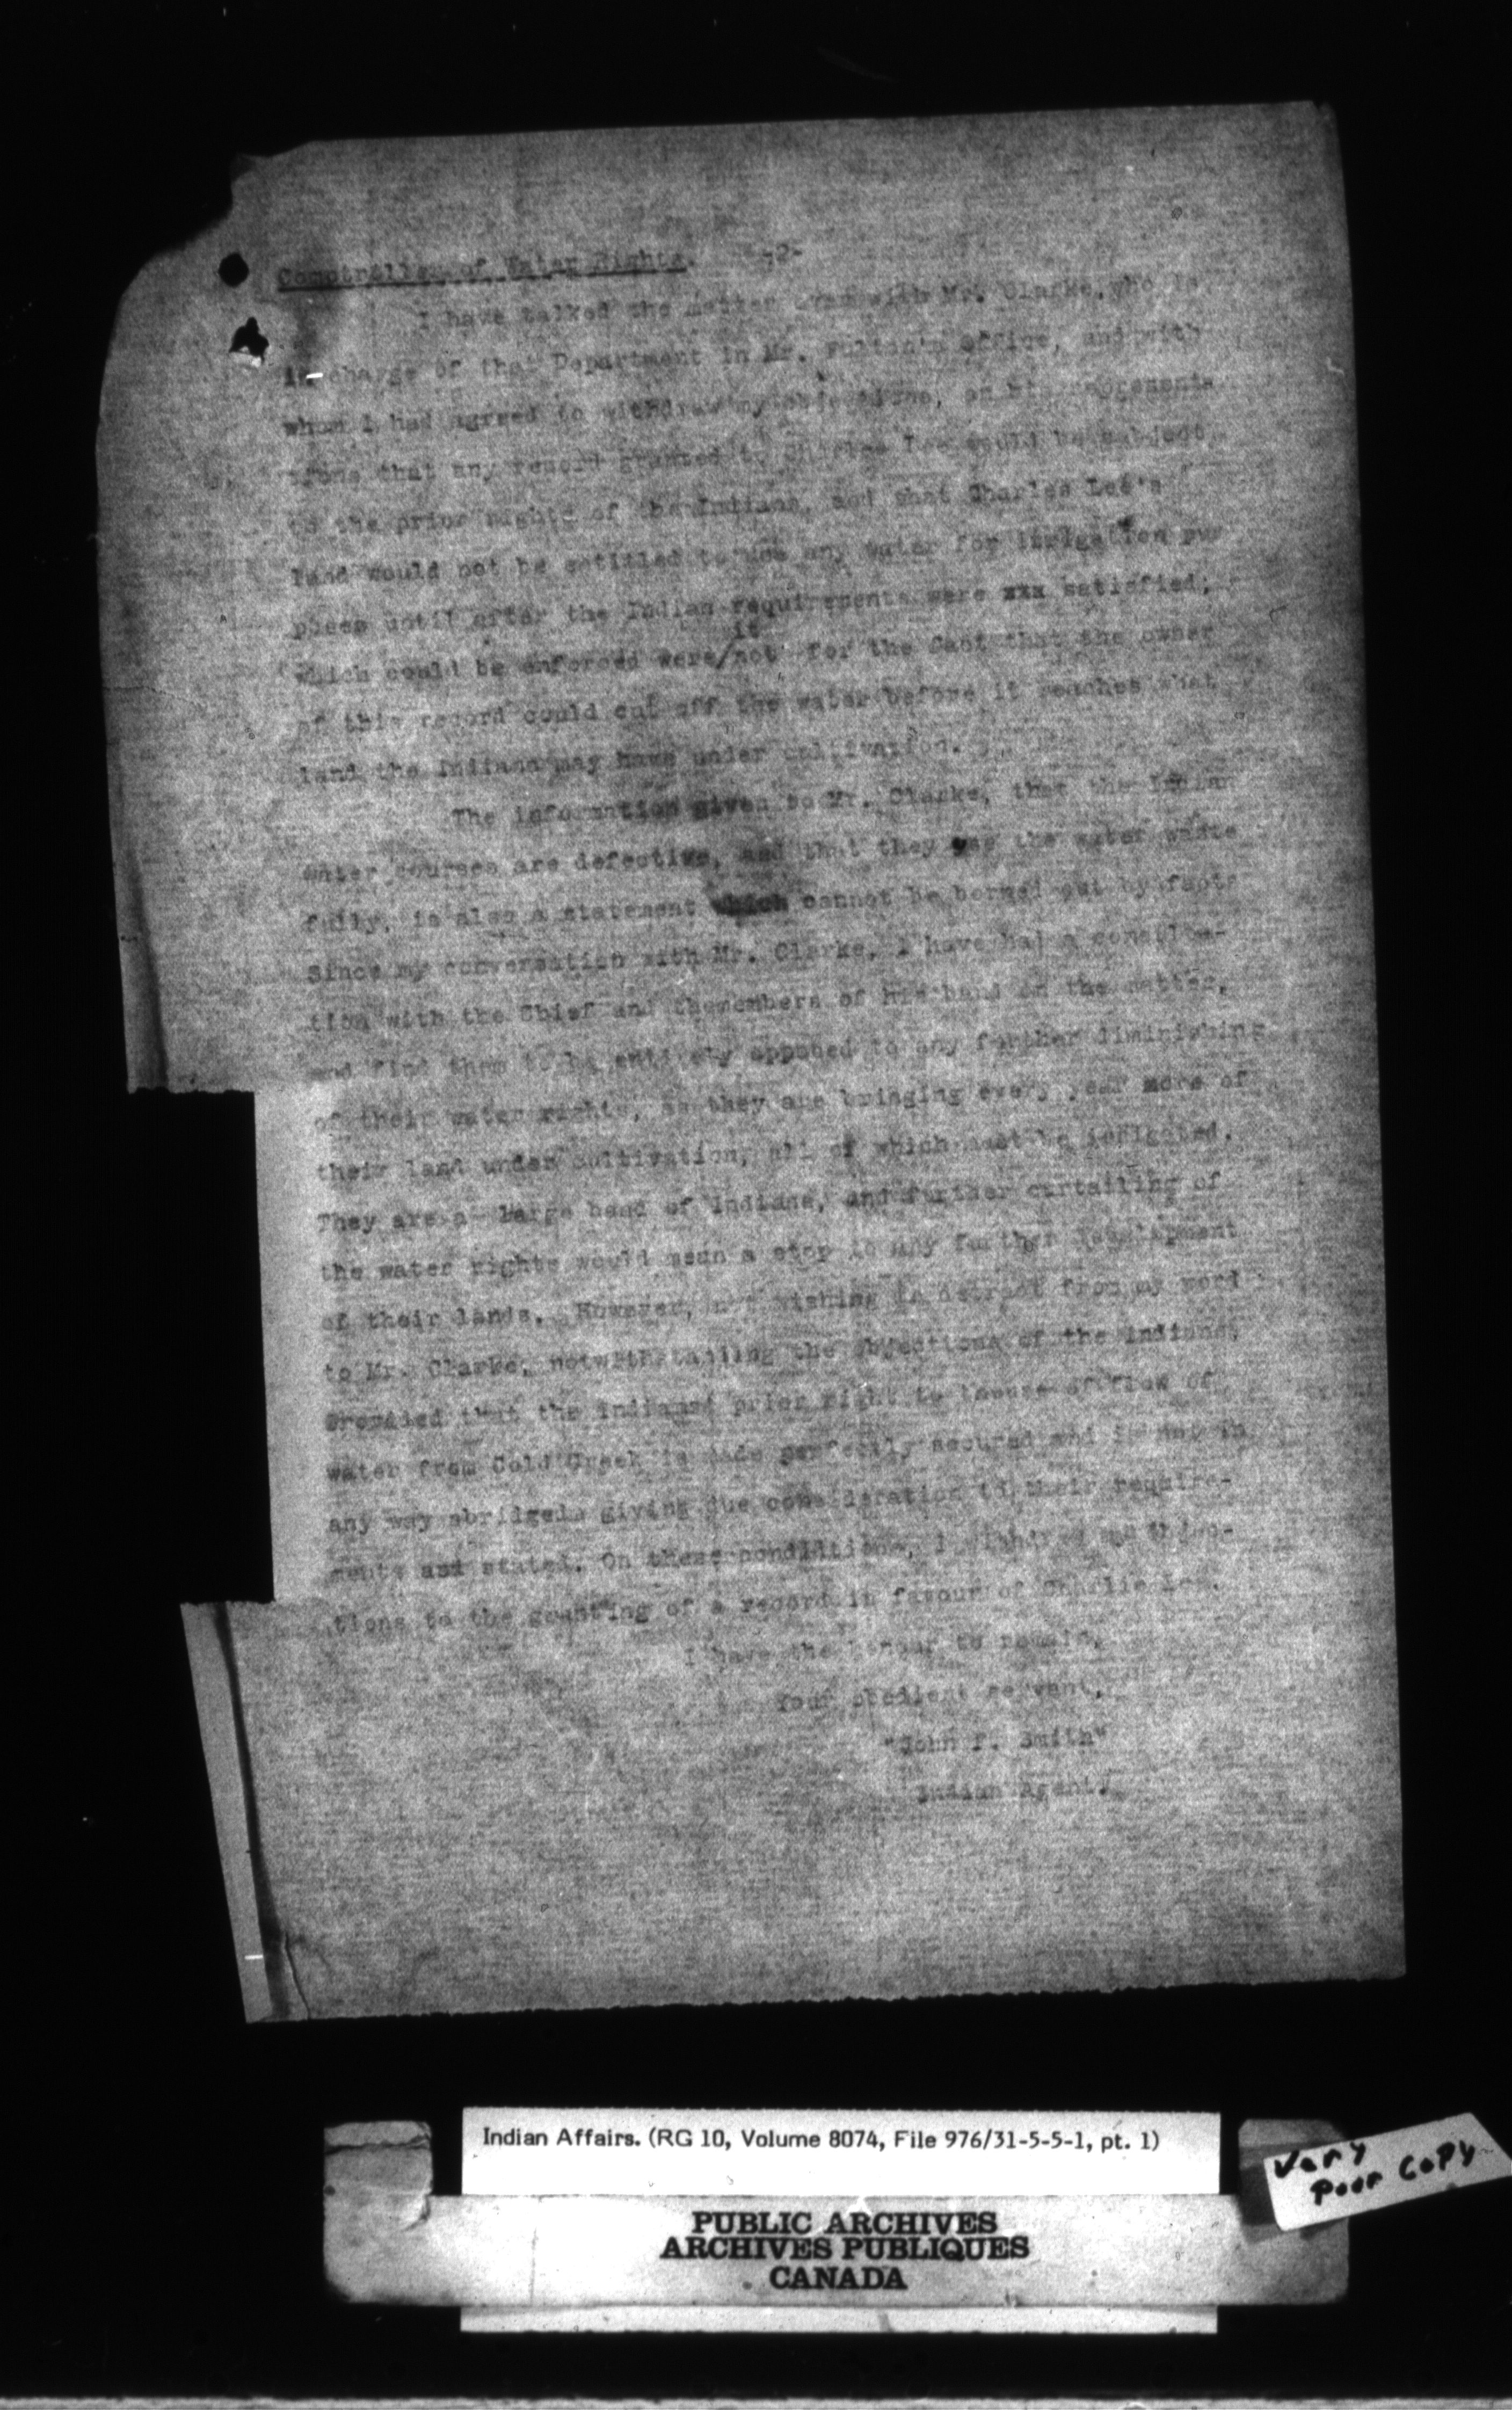 Comptroller of Water Rights. -2-
I have talked the matter over with Mr. Clarke, who is
in charge of that Department in Mr. Fulton's office, and with
whom I had agreed to withdraw my objections, on his representa
tions that any record granted to Charles Lee would be subject
to the prior rights of the Indians, and that Charles Lee's
land would not be entitled to use any water for irrigation pur
poses until after the Indian requirements were xxx satisfied,
it
which could be enforced were/not for the fact that the owner
of this record could cut off the water before it reaches what
land the Indians may have under cultivation.
The information given to Mr. Clarke, that the Indian
water courses are defective, and that they use the water waste
fully, is also a statement which cannot be borned out by facts
Since my conversation with Mr. Clarke, I have had a consulta-
tion with the Chief and themembers of his band on the matter,
and find them to be entirely opposed to any further diminishing
of their water rights, as they are bringing every year more of
their land under cultivation, all of which must be irrigated.
They are a large band of Indians, and further curtailing of
the water rights would mean a stop to any further development
of their lands. However, not wishing to detract from my word
to Mr. Clarke, notwithstanding the objections of the Indians,
Provided that the Indians' prior right to the use of flow of
water from Cold Creek is made perfectly secured and is not in
any way abridged giving due consideration to their require-
ments as stated. On these conditions, I withdraw my objec-
tions to the granting of a record in favour of Charlie Lee.
I have the honour to remain,
Your obedient servant,
"John F. Smith"
Indian Agent.
Indian Affairs. (RG 10, Volume 8074, File 976/31-5-5-1, pt. 1)
Very
Poor Copy
PUBLIC ARCHIVES
ARCHIVES PUBLIQUES
CANADA